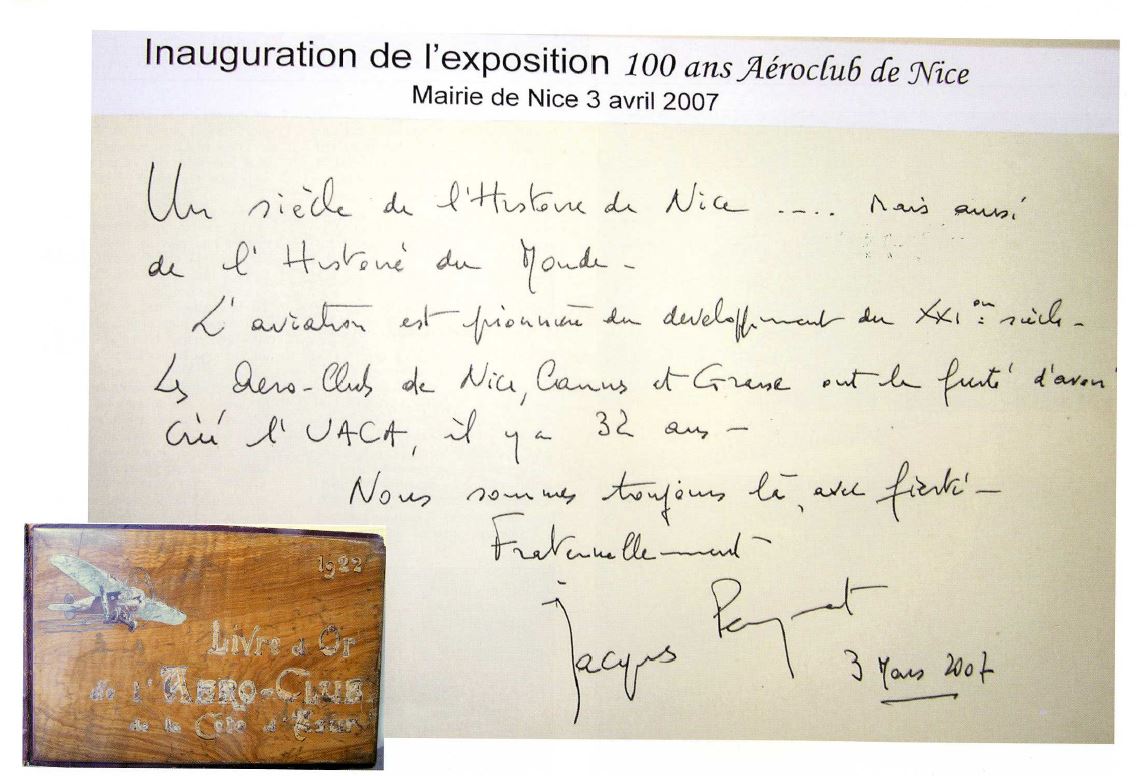 Inauguration de l'exposition 100 ans Aéroclub de Nice
Mairie de Nice 3 avril 2007
Un siècle de l'Histoire de Nice ..... Mais aussi
de l'Histoire du Monde -
L'aviation est pionnière du developpement du XXIème siècle -
Les Aero-Clubs de Nice, Cannes et Grasse ont la fierté d'avoir
créé l'UACA, il y a 32 ans -
Nous sommes toujours là, avec fierté -
Fraternellement -
Jacques
3 Mars 2007
1922
Livre d'Or
de l'Aero-Club
de la Côte d'Azur